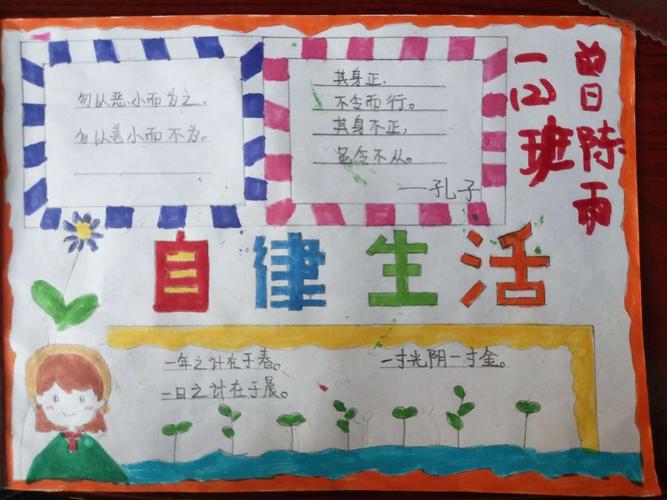 勿以恶小而为之，
勿以善小而不为。
其身正，
不令而行。
其身不正，
虽令不从。
——孔子
一（2）班
曾陈雨
自律生活
一年之计在于春。
一日之计在于晨。
一寸光阴一寸金。